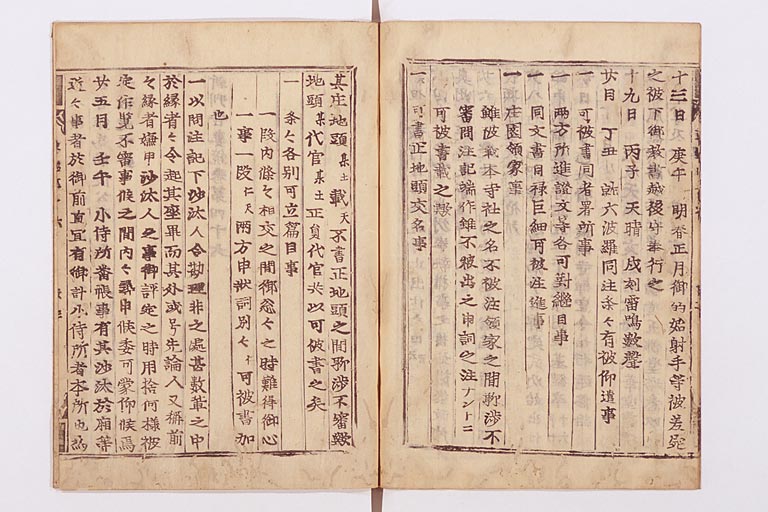 十三日 庚午 明春正月御的始射手等被差宛
之被下御教書越後守奉行之
十九日 丙子 天晴戌刻雷鳴数聲
廿日 丁丑 就六波羅問注条々有被仰遣事
一 可被書同者署所事
一 両方所進證文等各可對繼目事
一 同文書目録巨細可被注進事
一 庄園領家事
雖被載本寺社之名不被注領家之間聊渉不
審問注記端作雖不被出之申詞之注ナントニ
可被書載之
一 可書正地頭交名事
其庄地頭某土載天不書正地頭之間聊渉不審
地頭某代官某土正員代官共以可被書之矣
一 条々各別可立篇目事
一段内條々相交之間御忩々之時難得御心
一事一段仁天両方申状詞別々仁可被書加
也
一 以問注記下沙汰人令勘理非之處甚数輩之中
於縁者々令起其座畢而其外或号先論人又稱前
々縁者嫌申沙汰人之事御評定之時用捨何様被
定作覧不審事候之間内々執申候委可蒙仰候焉
廿五日 壬午 小侍所番帳事有其沙汰於廂等
近々事者於御前直宜有御計小侍所者本所也為